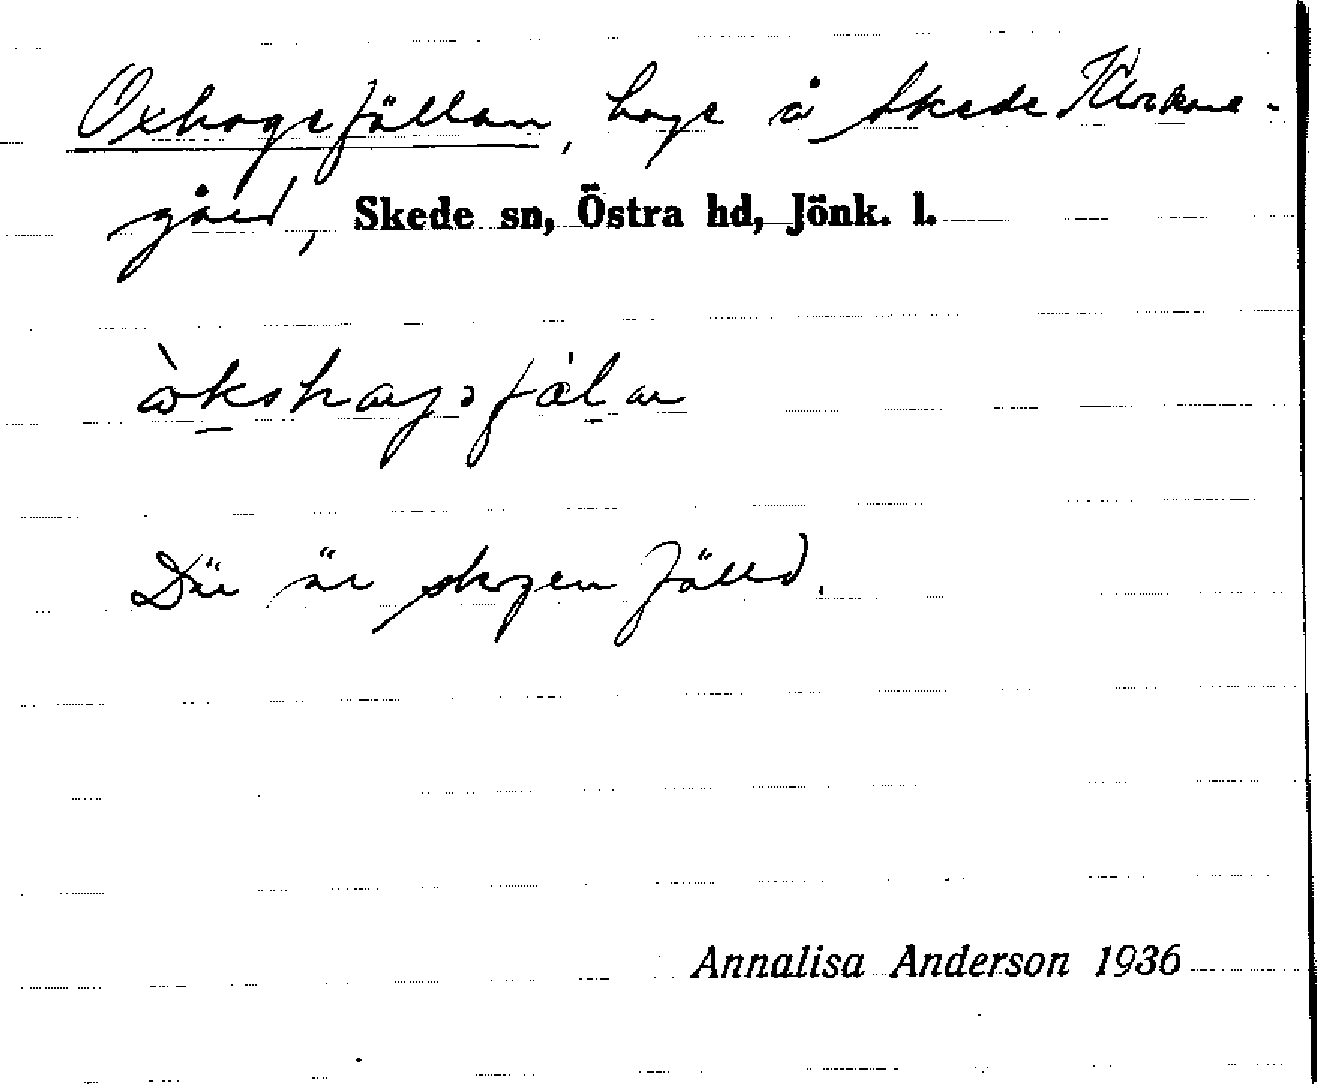 Oxhagefällan, hage å Skede Klockare-
gård, Skede sn, Östra hd, Jönk. l.
Där är skogen fälld.
Annalisa Anderson 1936